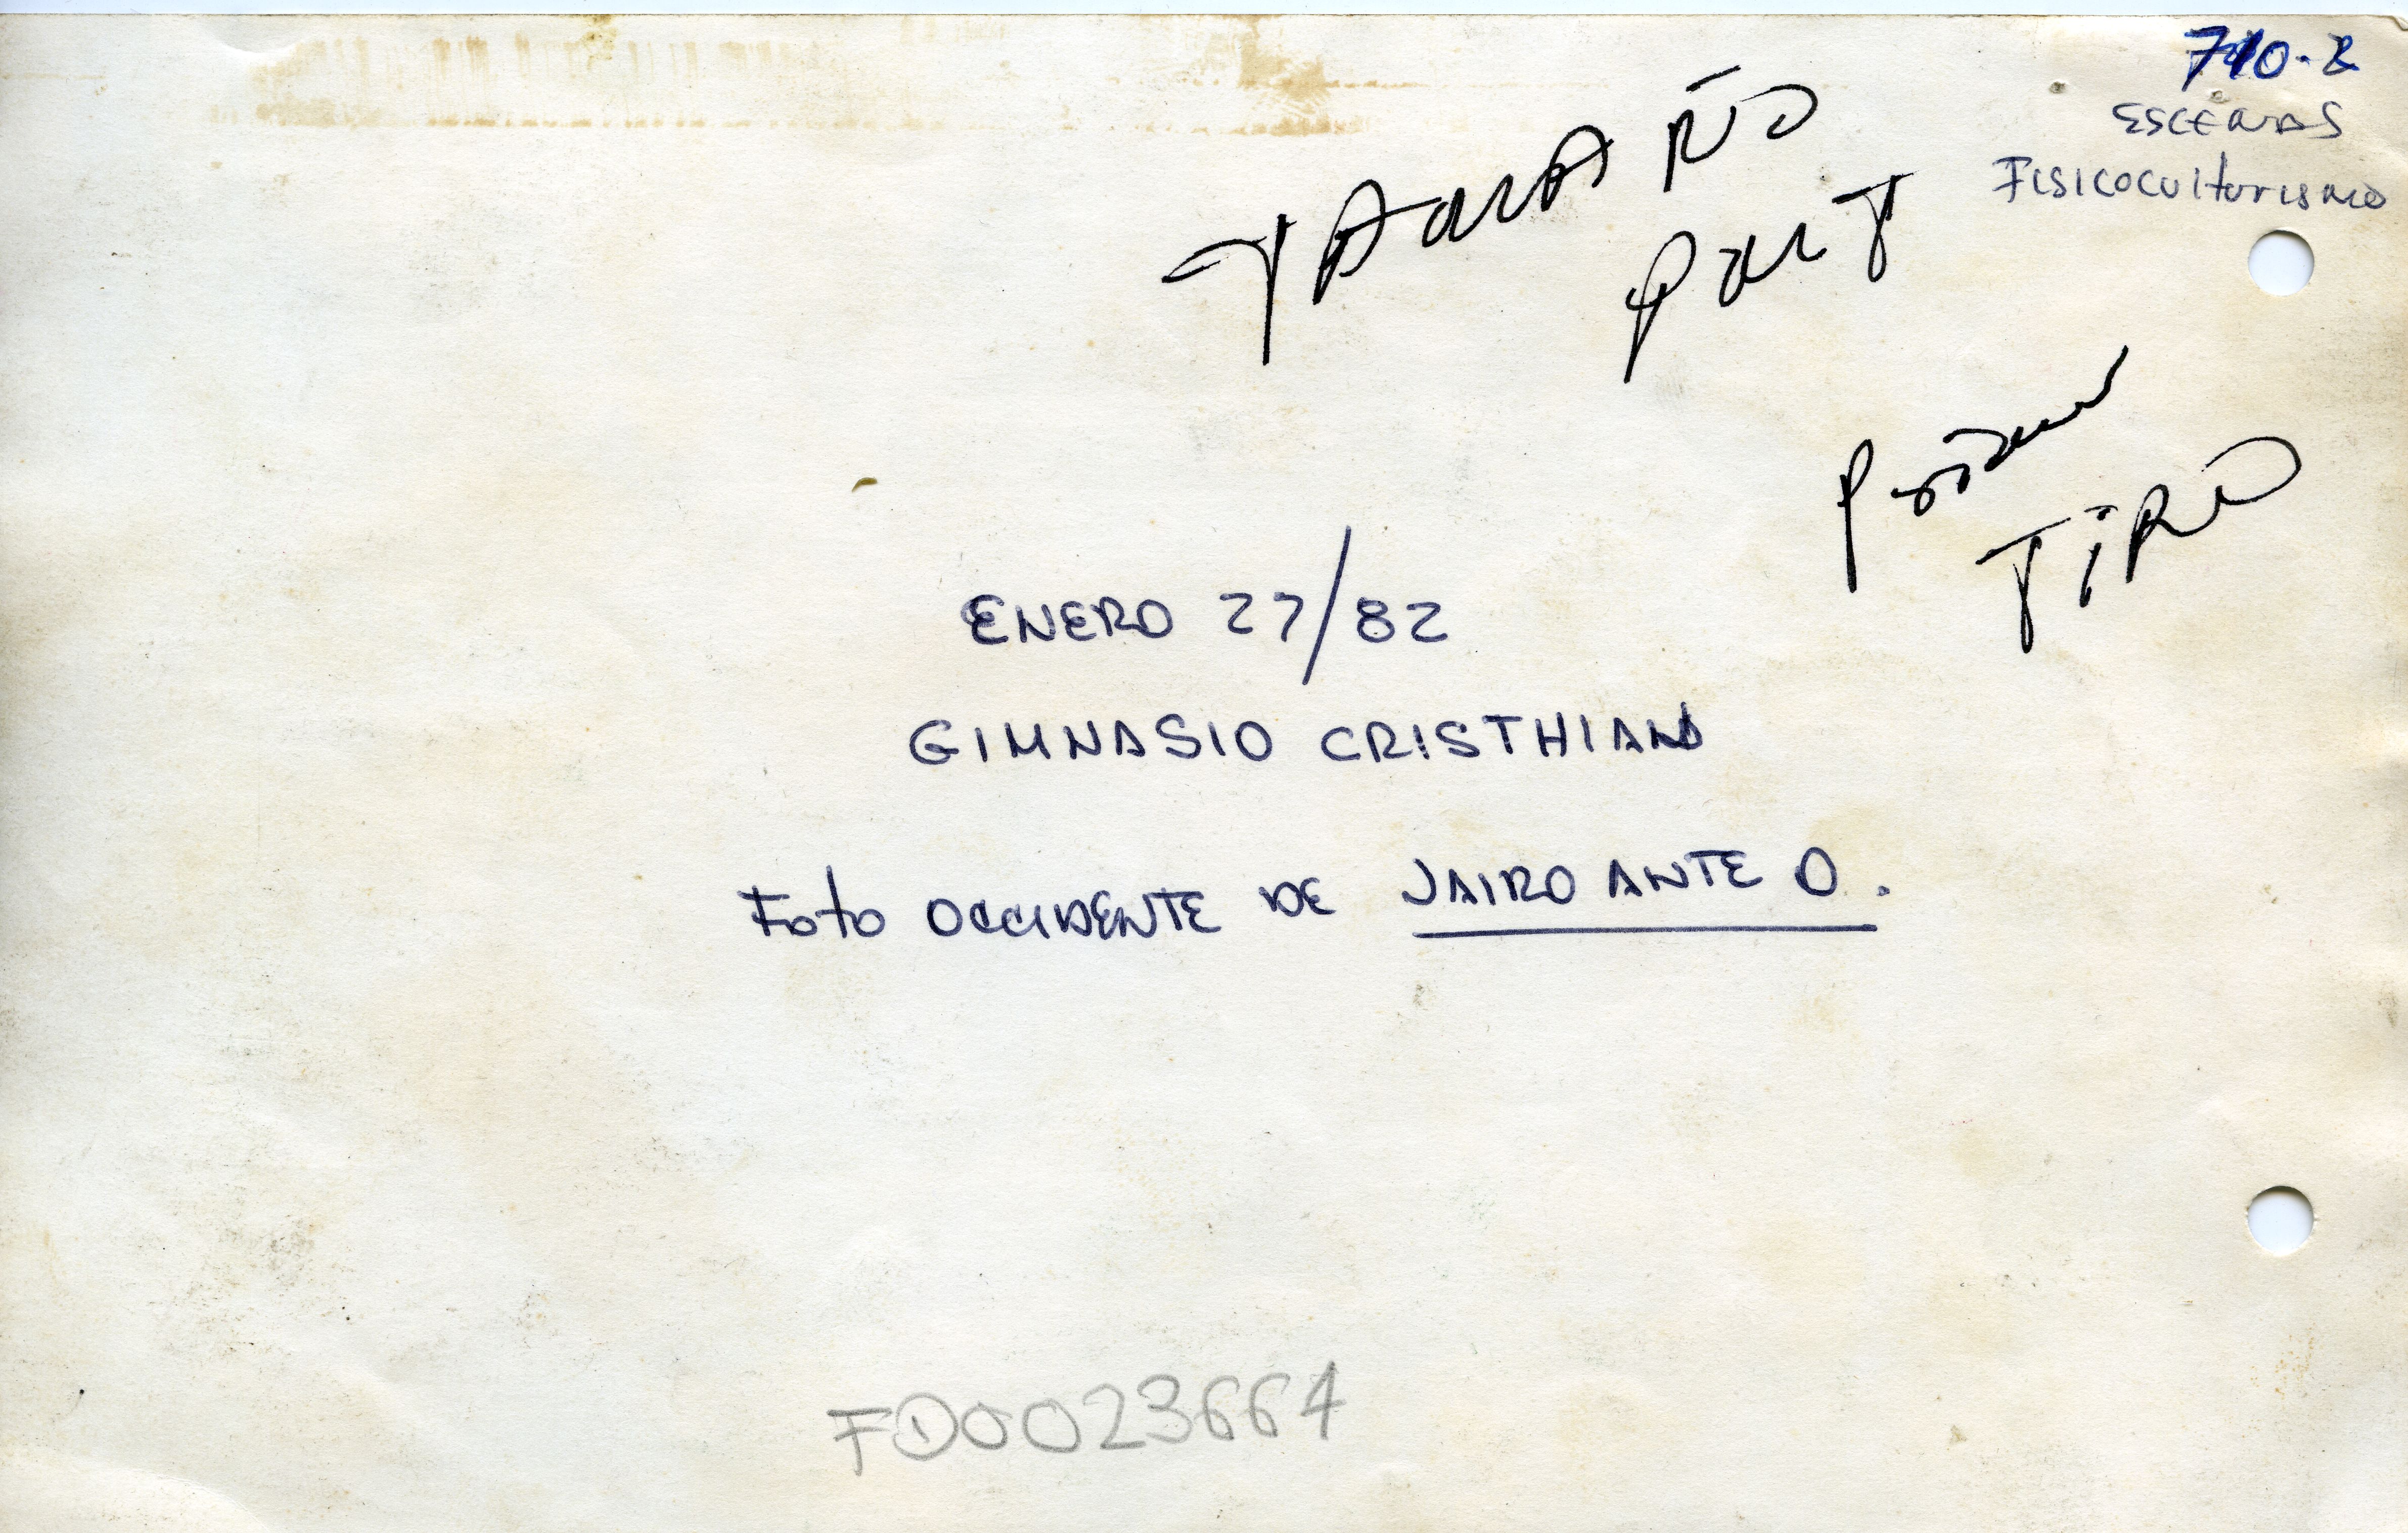 710-2
ESCENAS
FISICOCULTURISMO
TAMAÑO
POST
TIRO
ENERO 27/82
GIMNASIO CRISTHIAN
Foto OCCIDENTE DE JAIRO ANTE O.
FD0023664